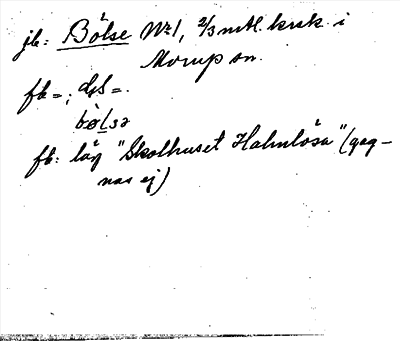 jb: Bölse Nr 1, 2/3 mtl. krsk. i
Morup sn.
fb = ; dsl = .
bø̀lsə
fb: låg "Skolhuset Halmlösa" (gag-
nas ej)